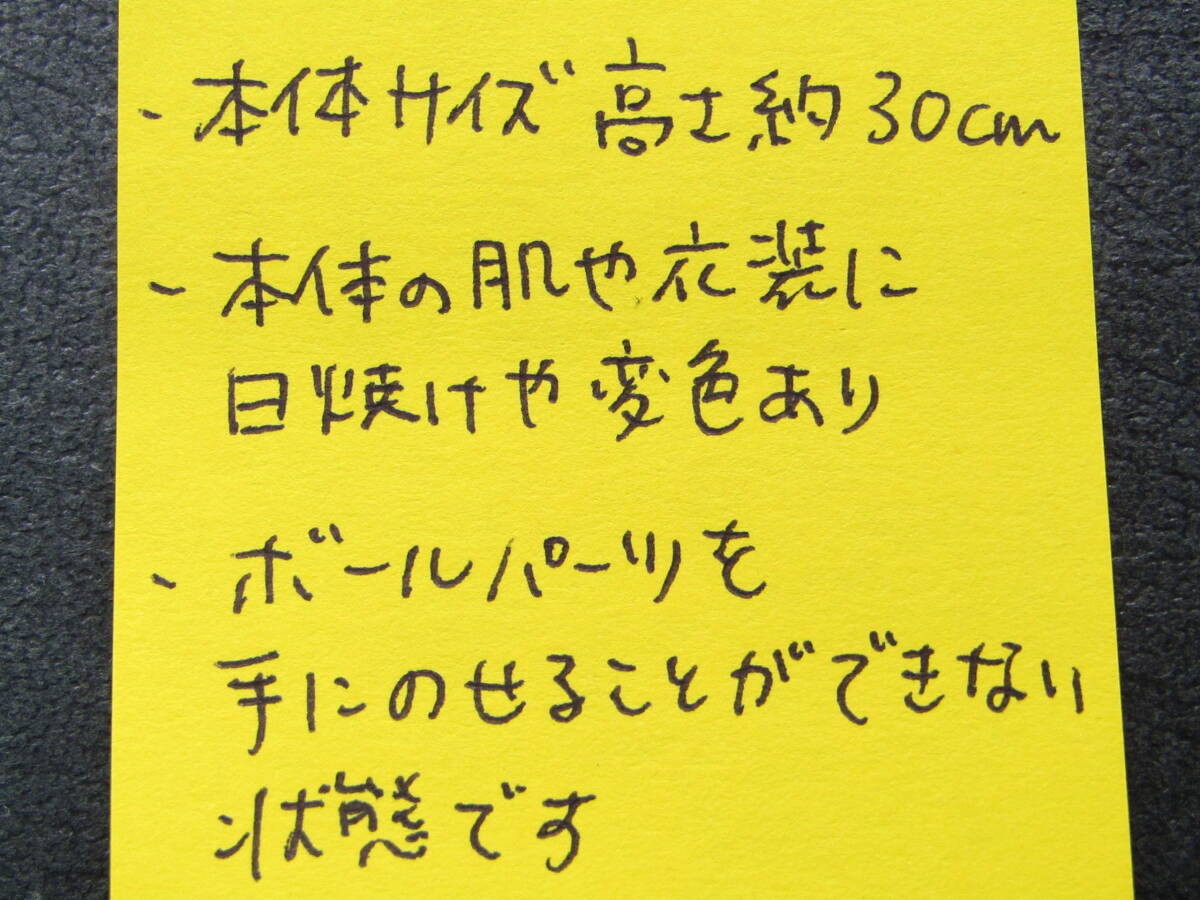 ・本体サイズ 高さ約30cm
・本体の肌や衣装に
日焼けや変色あり
・ボールパーツを
手にのせることができない
状態です